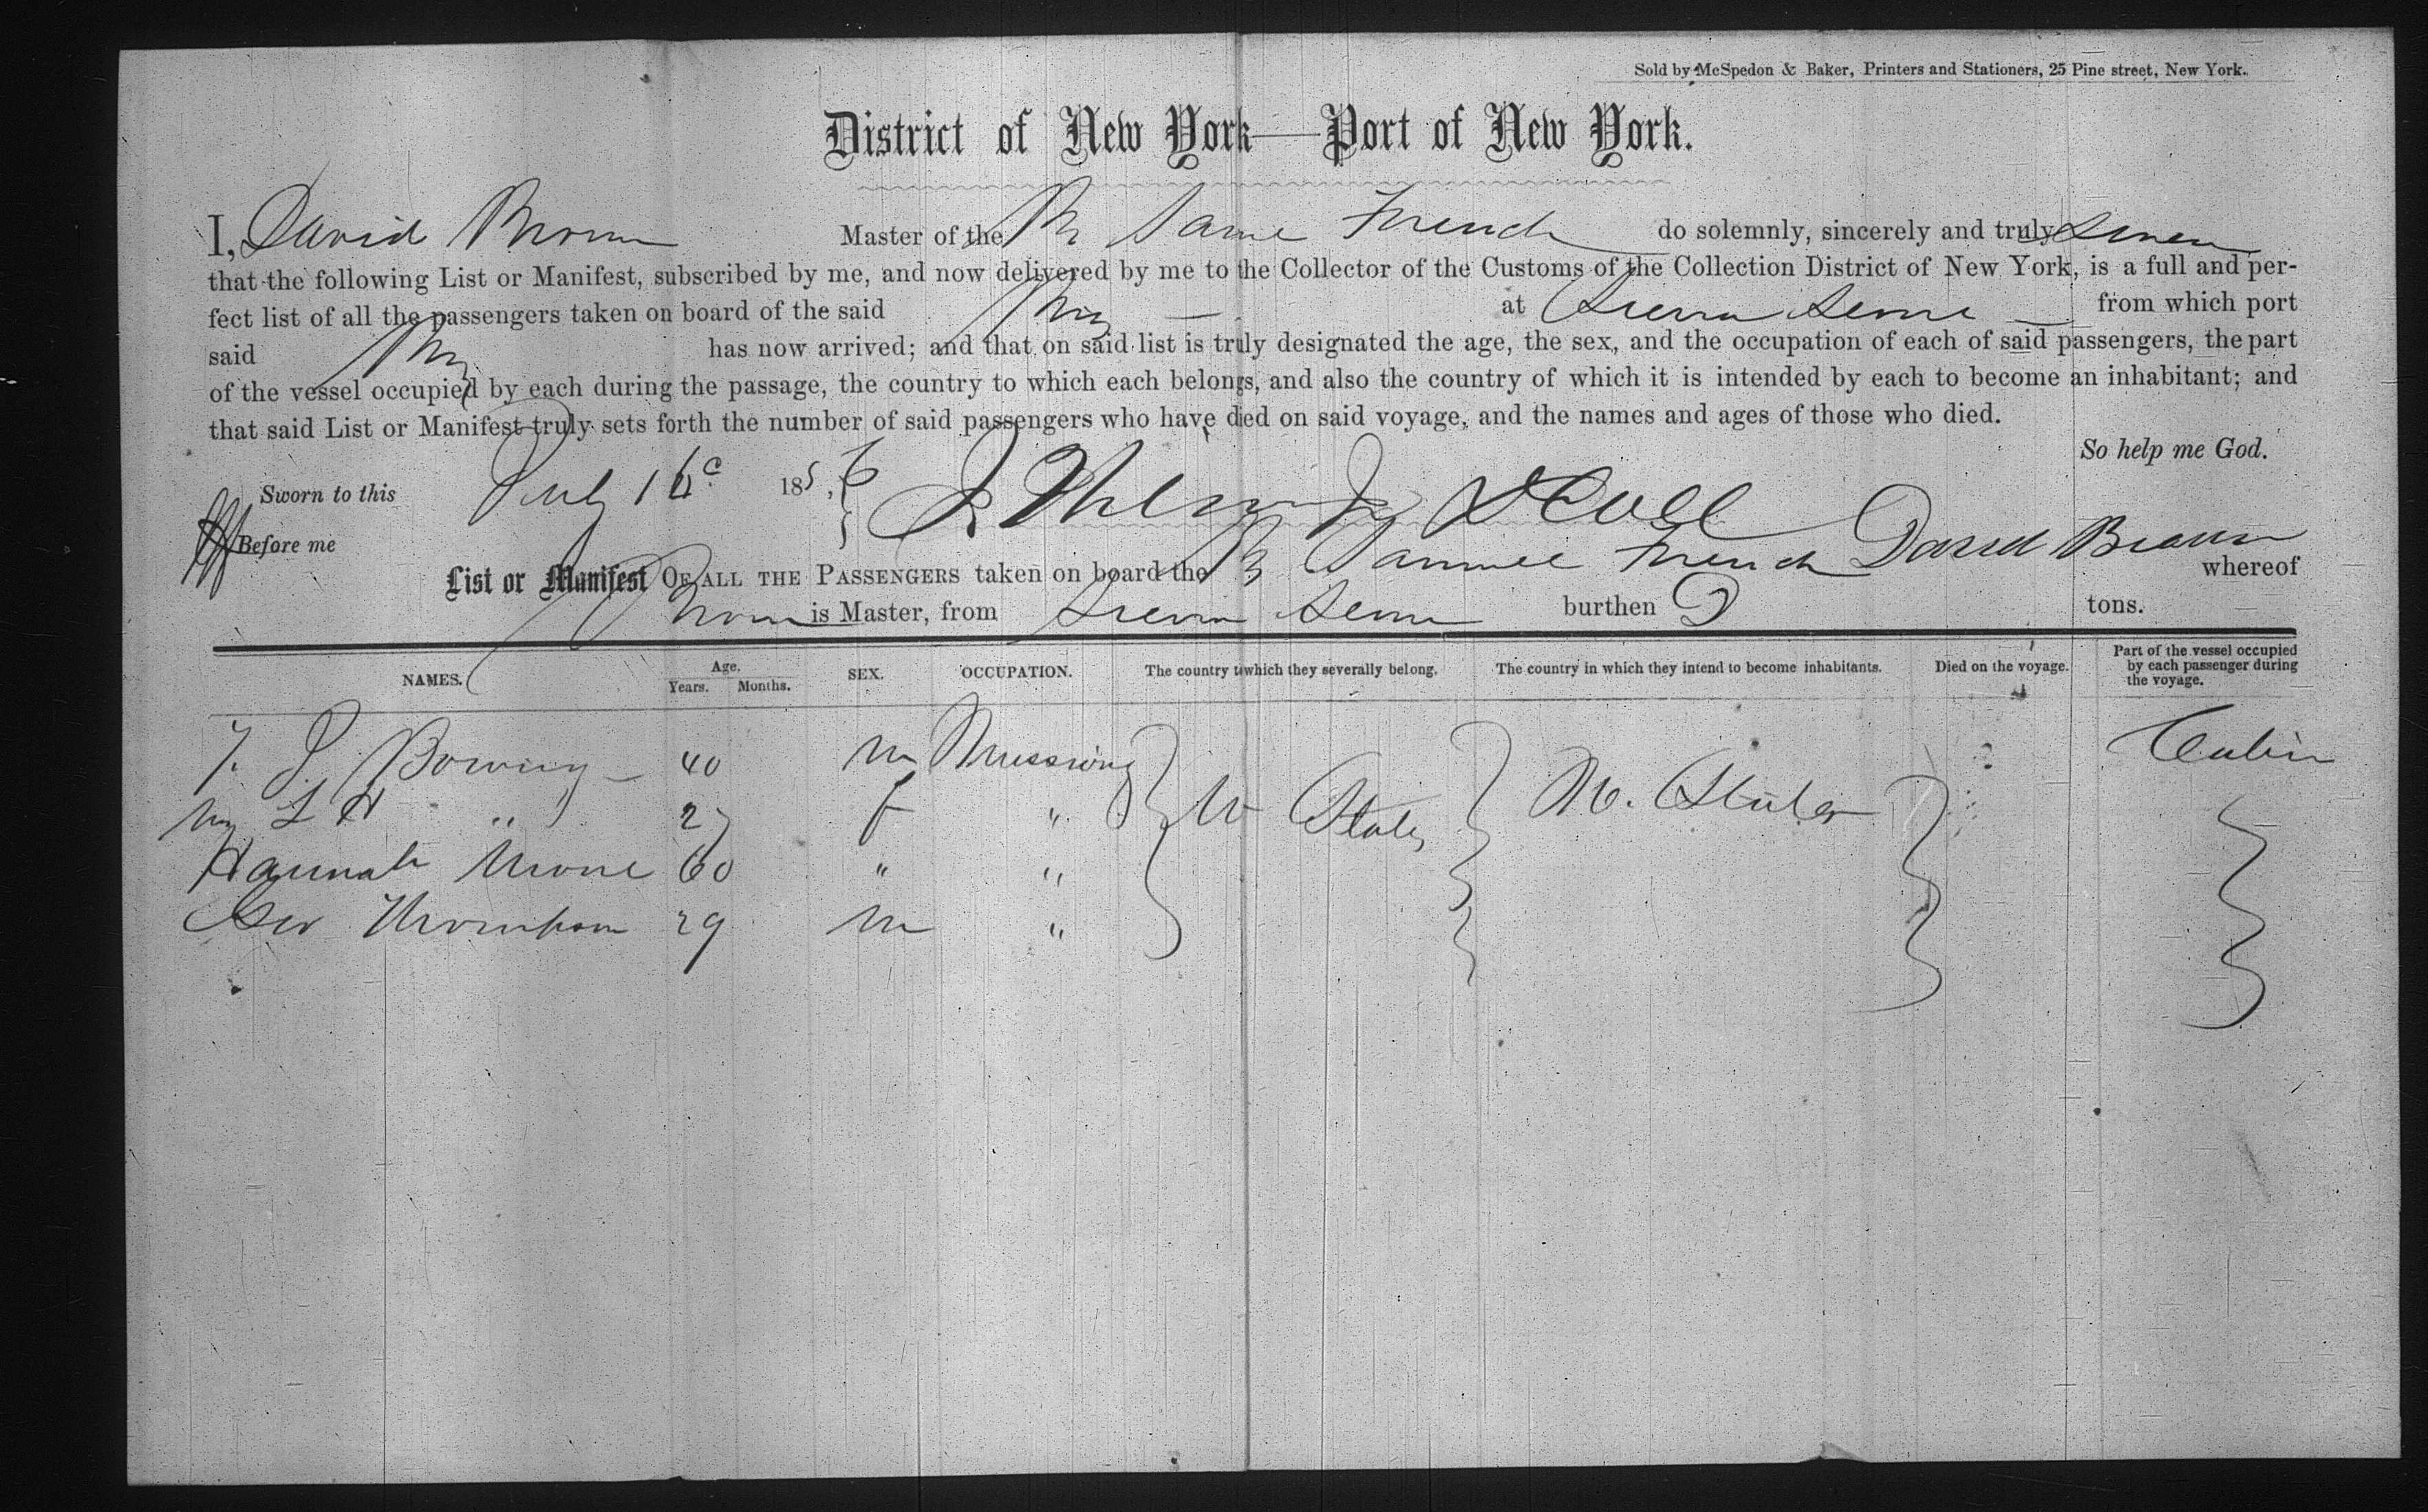 Sold by McSpedon & Baker, Printers and Stationers, 25 Pine street, New York.
District of New York—Port of New York.
I, David Brown Master of the Br French do solemnly, sincerely and truly swear
that the following List or Manifest, subscribed by me, and now delivered by me to the Collector of the Customs of the Collection District of New York, is a full and per-
fect list of all the passengers taken on board of the said Brig at Sierra Leone from which port
said Brig has now arrived; and that on said list is truly designated the age, the sex, and the occupation of each of said passengers, the part
of the vessel occupied by each during the passage, the country to which each belongs, and also the country of which it is intended by each to become an inhabitant; and
that said List or Manifest truly sets forth the number of said passengers who have died on said voyage, and the names and ages of those who died.
So help me God.
Sworn to this July 16 1856
Before me David Brown
List or Manifest OF ALL THE PASSENGERS taken on board the Br Samuel French whereof
Brown is Master, from Sierra Leone burthen tons.
NAMES. Age. Years. Months. SEX. OCCUPATION. The country to which they severally belong. The country in which they intend to become inhabitants. Died on the voyage. Part of the vessel occupied by each passenger during the voyage.
J. 40 m Cabin
L H " 27 f " U States U. States
Hannah More 60 " "
Geo Thompson 29 m "